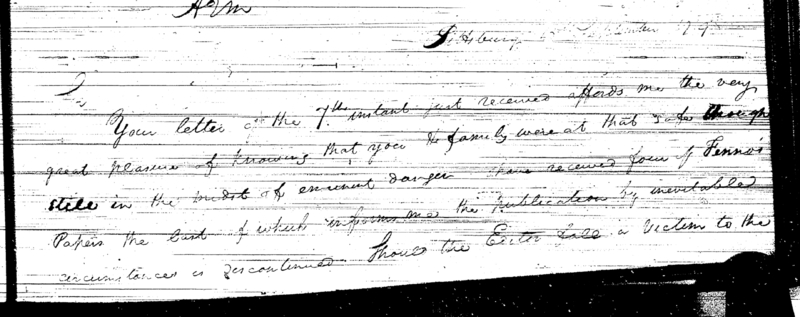 Pittsburg September 19 98
Your letter of the 7th instant just received affords me the very
great pleasure of knowing that you & family were at that date though
still in the midst of eminent danger I have received four of Fenno's
Papers the last of which informs me the Publication by inevitable
circumstances is discontinued Should the Editor fall a Victim to the